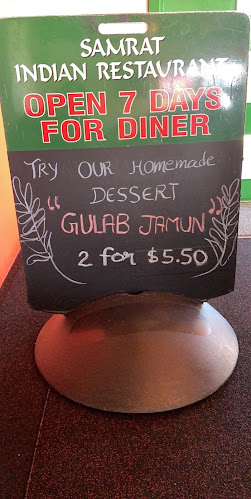 SAMRAT
INDIAN RESTAURANT
OPEN 7 DAYS
FOR DINER
TRY OUR Homemade
DESSERT
"GULAB JAMUN"
2 for $5.50